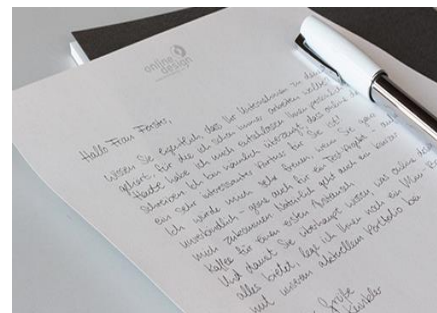 online
design
Hallo Frau Forster,
wissen Sie eigentlich, dass Ihr Unternehmen zu denen
gehört, für die ich schon immer arbeiten wollte?
Heute habe ich mich entschlossen Ihnen persönlich zu
schreiben. Ich bin nämlich überzeugt, dass online de
ein sehr interessanter Partner für Sie ist!
Ich würde mich sehr freuen, wenn Sie ganz
unverbindlich - gerne auch für ein Testprojekt - auf
mich zukommen. Natürlich geht auch ein
Kaffee für einen ersten Austausch.
Und damit Sie überhaupt wissen, was online de
alles bietet, lege ich Ihnen noch ein
mit unserem aktuellen Portfolio bei
Grüße